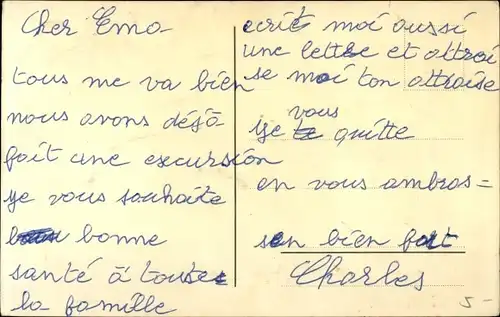 Cher Emo
tous me va bien
nous avons déjà
fait une excursion
je vous souhaite
bonne
santé à toute
la famille
ecrit moi aussi
une lettre et attroi
se moi ton attroise
vous
je te quitte
en vous ambros=
sen bien fort
Charles
5-